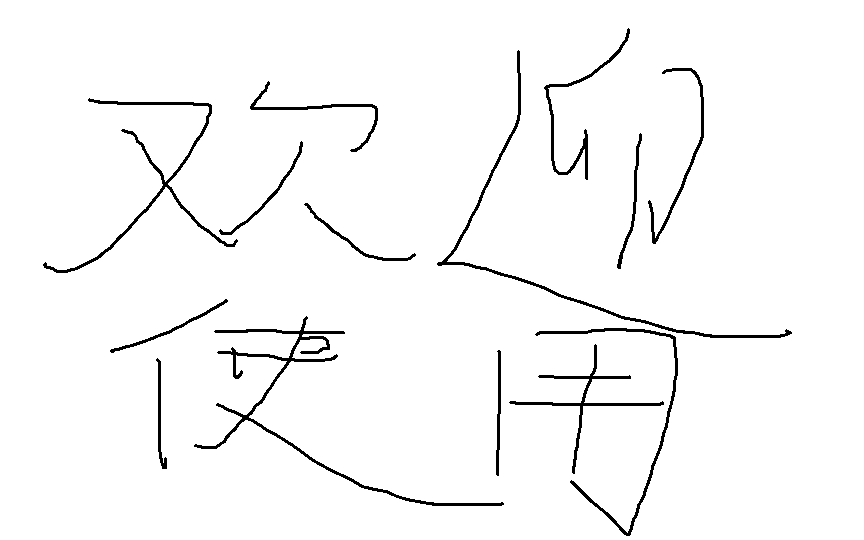 欢迎
使用